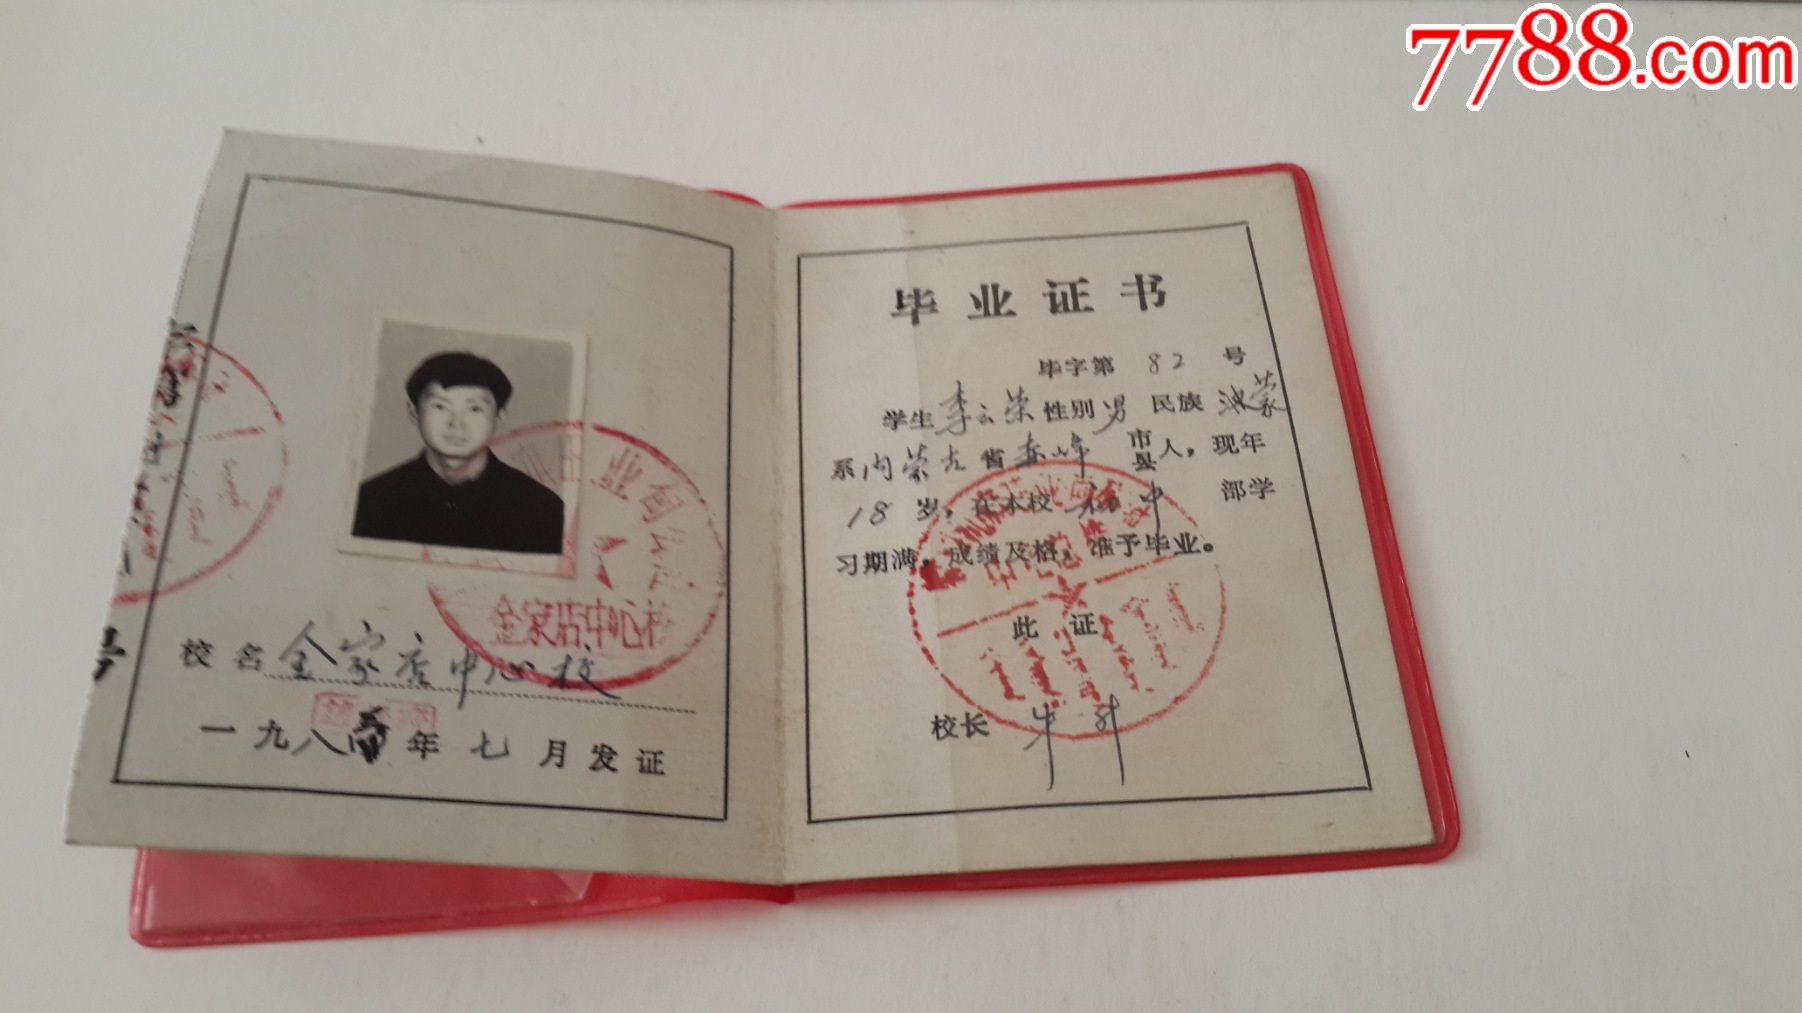 7788.com
金家店中心校
校名 金家店中心校
一九八四年七月发证
毕业证书
毕字第 82 号
学生 李云荣 性别 男 民族 蒙
系 内蒙古 省 赤峰 市县人，现年
18 岁，在本校 初中 部学
习期满，成绩及格，准予毕业。
此证
校长